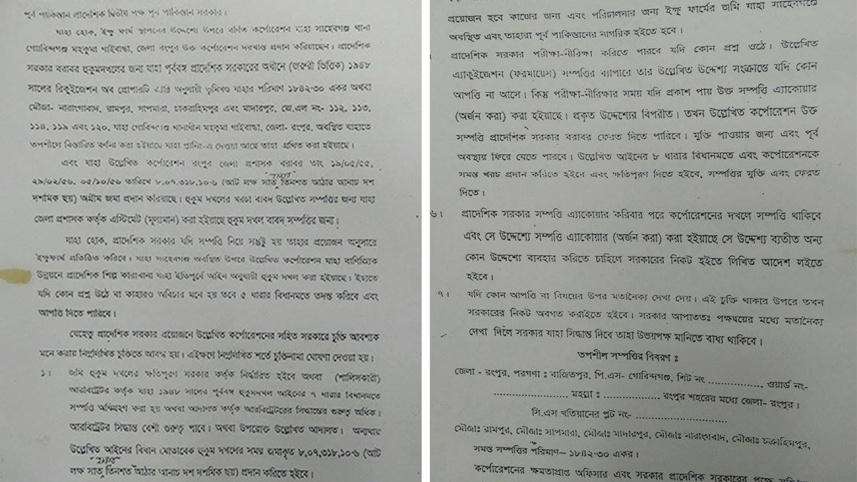 পূর্ব পাকিস্তান প্রাদেশিক দ্বিতীয় পক্ষ পূর্ব পাকিস্তান সরকার।
যাহা হোক, ইক্ষু ফার্ম স্থাপনের উদ্দেশ্যে উপরে বর্ণিত কর্পোরেশন যাহা সাহেবগঞ্জ থানা
গোবিন্দগঞ্জ মহকুমা গাইবান্ধা, জেলা রংপুর উক্ত কর্পোরেশন দরখাস্ত প্রদান করিয়াছেন। প্রাদেশিক
সরকার বরাবর হুকুমদখলের জন্য যাহা পূর্ববঙ্গ প্রাদেশিক সরকারের অধীনে (জরুরী ভিত্তিক) ১৯৪৮
সালের রিকুইজেশন অব প্রোপারটি এ্যাক্ট অনুযায়ী ভূমিতব্য যাহার পরিমান ১৮৪২-৩০ একর অথবা
মৌজা- নারাংগাবাদ, রামপুর, সাপমারা, চকরাহিমপুর এবং মাদারপুর, জে.এল নং- ১১২, ১১৩,
১১৪, ১১৯ এবং ১২০, যাহা গোবিন্দগঞ্জ থানাধীন মহকুমা গাইবান্ধা, জেলা- রংপুর, অবস্থিত যাহাতে
তপশীলে বিস্তারিত বর্ণনা করা হইয়াছে যাহা প্লানিং-এ দেওয়া আছে তাহা গ্রথিত করা হইয়াছে।
এবং যাহা উল্লেখিত কর্পোরেশন রংপুর জেলা প্রশাসক বরাবর তাং ১৯/০৫/৫৫,
২৯/০২/৫৬, ০৫/১০/৫৬ তারিখে ৮,০৭,৩১৮,১০৬ (আট লক্ষ সাত তিনশত আঠার আনাচ দশ
দশমিক ছয়) অগ্রীম জমা প্রদান করিয়াছে। হুকুম দখলের খরচা বাবদ উল্লেখিত সম্পত্তির জন্য যাহা
জেলা প্রশাসক কর্তৃক এস্টিমেট (মূল্যমান) করা হইয়াছে হুকুম দখল বাবদ সম্পত্তির জন্য।
যাহা হোক, প্রাদেশিক সরকার যদি সম্পত্তি নিয়ে সন্তুষ্ট হয় তাহার প্রয়োজন অনুসারে
ইক্ষুফার্ম প্রতিষ্ঠিত করিবে। যাহা সাহেবগঞ্জ অবস্থিত উপরে উল্লেখিত কর্পোরেশন যাহা বাণিজ্যিক
উন্নয়নে প্রাদেশিক শিল্প কারাখানা যাহা ইতিপূর্বে আইন অনুযায়ী হুকুম দখল করা হইয়াছে। ইহাতে
যদি কোন প্রশ্ন উঠে বা কাহারও অবিচার মনে হয় তবে ৫ ধারার বিধানমতে তদন্ত করিবে এবং
আপত্তি দিতে পারিবে।
যেহেতু প্রাদেশিক সরকার প্রয়োজনে উল্লেখিত কর্পোরেশনের সহিত সরকারে চুক্তি আবশ্যক
মনে করায় নিম্নলিখিত চুক্তিতে আবদ্ধ হয়। এইক্ষণে নিম্নলিখিত শর্তে চুক্তিনামা ঘোষণা দেওয়া হয়।
১। জমি হুকুম দখলের ক্ষতিপূরণ সরকার কর্তৃক নির্ধারিত হইবে অথবা (শালিসকারী)
আরবিট্রেটর কর্তৃক যাহা ১৯৪৮ সালের পূর্ববঙ্গ হুকুমদখল আইনের ৭ ধারার বিধানমতে
সম্পত্তি অধিগ্রহণ করা হয় অথবা আদালত কর্তৃক আরবিট্রেটরের সিদ্ধান্তের গুরুত্ব অধিক।
আরবিট্রেটর সিদ্ধান্ত বেশী গুরুত্ব পাবে। অথবা উপরোক্ত উল্লেখিত আদালত। অন্যথায়
উল্লেখিত আইনের বিধান মোতাবেক হুকুম দখলের সময় জমাকৃত ৮,০৭,৩১৮,১০৬ (আট
লক্ষ সাত তিনশত আঠার আনাচ দশ দশমিক ছয়) প্রদান করিতে হইবে।
প্রয়োজন হবে কাজের জন্য এবং পরিচালনার জন্য ইক্ষু ফার্মের জমি যাহা সাহেবগঞ্জে
অবস্থিত এবং তাহারা পূর্ব পাকিস্তানের নাগরিক হইতে হবে।
প্রাদেশিক সরকার পরীক্ষা-নীরিক্ষা করিতে পারবে যদি কোন প্রশ্ন ওঠে। উল্লেখিত
এ্যাকুইজেশন (ফরমায়েস) সম্পত্তির ব্যাপারে তার উল্লেখিত উদ্দেশ্য সংক্রান্তে যদি কোন
আপত্তি না আসে। কিন্তু পরীক্ষা-নীরিক্ষার সময় যদি প্রকাশ পায় উক্ত সম্পত্তি এ্যাকোয়ার
(অর্জন করা) করা হইয়াছে। প্রকৃত উদ্দেশ্যের বিপরীত। তখন উল্লেখিত কর্পোরেশন উক্ত
সম্পত্তি প্রাদেশিক সরকার বরাবর ফেরত দিতে পারিবে। মুক্তি পাওয়ার জন্য এবং পূর্ব
অবস্থায় ফিরে যেতে পারবে। উল্লেখিত আইনের ৮ ধারার বিধানমতে এবং কর্পোরেশনকে
সমস্ত খরচ প্রদান করিতে হইবে এবং ক্ষতিপুরণ দিতে হইবে, সম্পত্তির মুক্তি এবং ফেরত
দিতে।
৬। প্রাদেশিক সরকার সম্পত্তি এ্যাকোয়ার করিবার পরে কর্পোরেশনের দখলে সম্পত্তি থাকিবে
এবং সে উদ্দেশ্যে সম্পত্তি এ্যাকোয়ার (অর্জন করা) করা হইয়াছে সে উদ্দেশ্য ব্যতীত অন্য
কোন উদ্দেশ্যে ব্যবহার করিতে চাহিলে সরকারের নিকট হইতে লিখিত আদেশ লইতে
হইবে।
৭। যদি কোন আপত্তি বা বিষয়ের উপর মতানৈক্য দেখা দেয়। এই চুক্তি থাকার উপরে তখন
সরকারের নিকট অবগত করাইতে হইবে। সরকার আপাততঃ পক্ষদ্বয়ের মধ্যে মতানৈক্য
দেখা দিলে সরকার যাহা সিদ্ধান্ত দিবে তাহা উভয়পক্ষ মানিতে বাধ্য থাকিবে।
তপশীল সম্পত্তির বিবরণ ঃ
জেলা - রংপুর, পরগণা ঃ বাজিতপুর, পি.এস- গোবিন্দগঞ্জ, শিট নং ................, ওয়ার্ড নং-
..................... মহল্লা ঃ ................ রংপুর শহরের মধ্যে জেলা- রংপুর।
সি.এস খতিয়ানের প্লট নং- .........................
মৌজাঃ রামপুর, মৌজাঃ সাপমারা, মৌজাঃ মাদারপুর, মৌজাঃ নারাংগাবাদ, মৌজাঃ চকরাহিমপুর,
সমস্ত সম্পত্তির পরিমাণ– ১৮৪২-৩০ একর।
কর্পোরেশনের ক্ষমতাপ্রাপ্ত অফিসার এবং সরকার প্রাদেশিক সরকারের পক্ষে